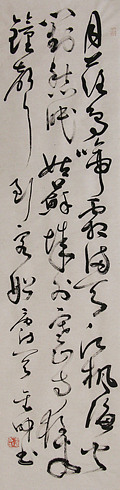 月落烏啼霜滿天江楓漁火
對愁眠姑蘇城外寒山寺夜半
鐘聲到客船
書